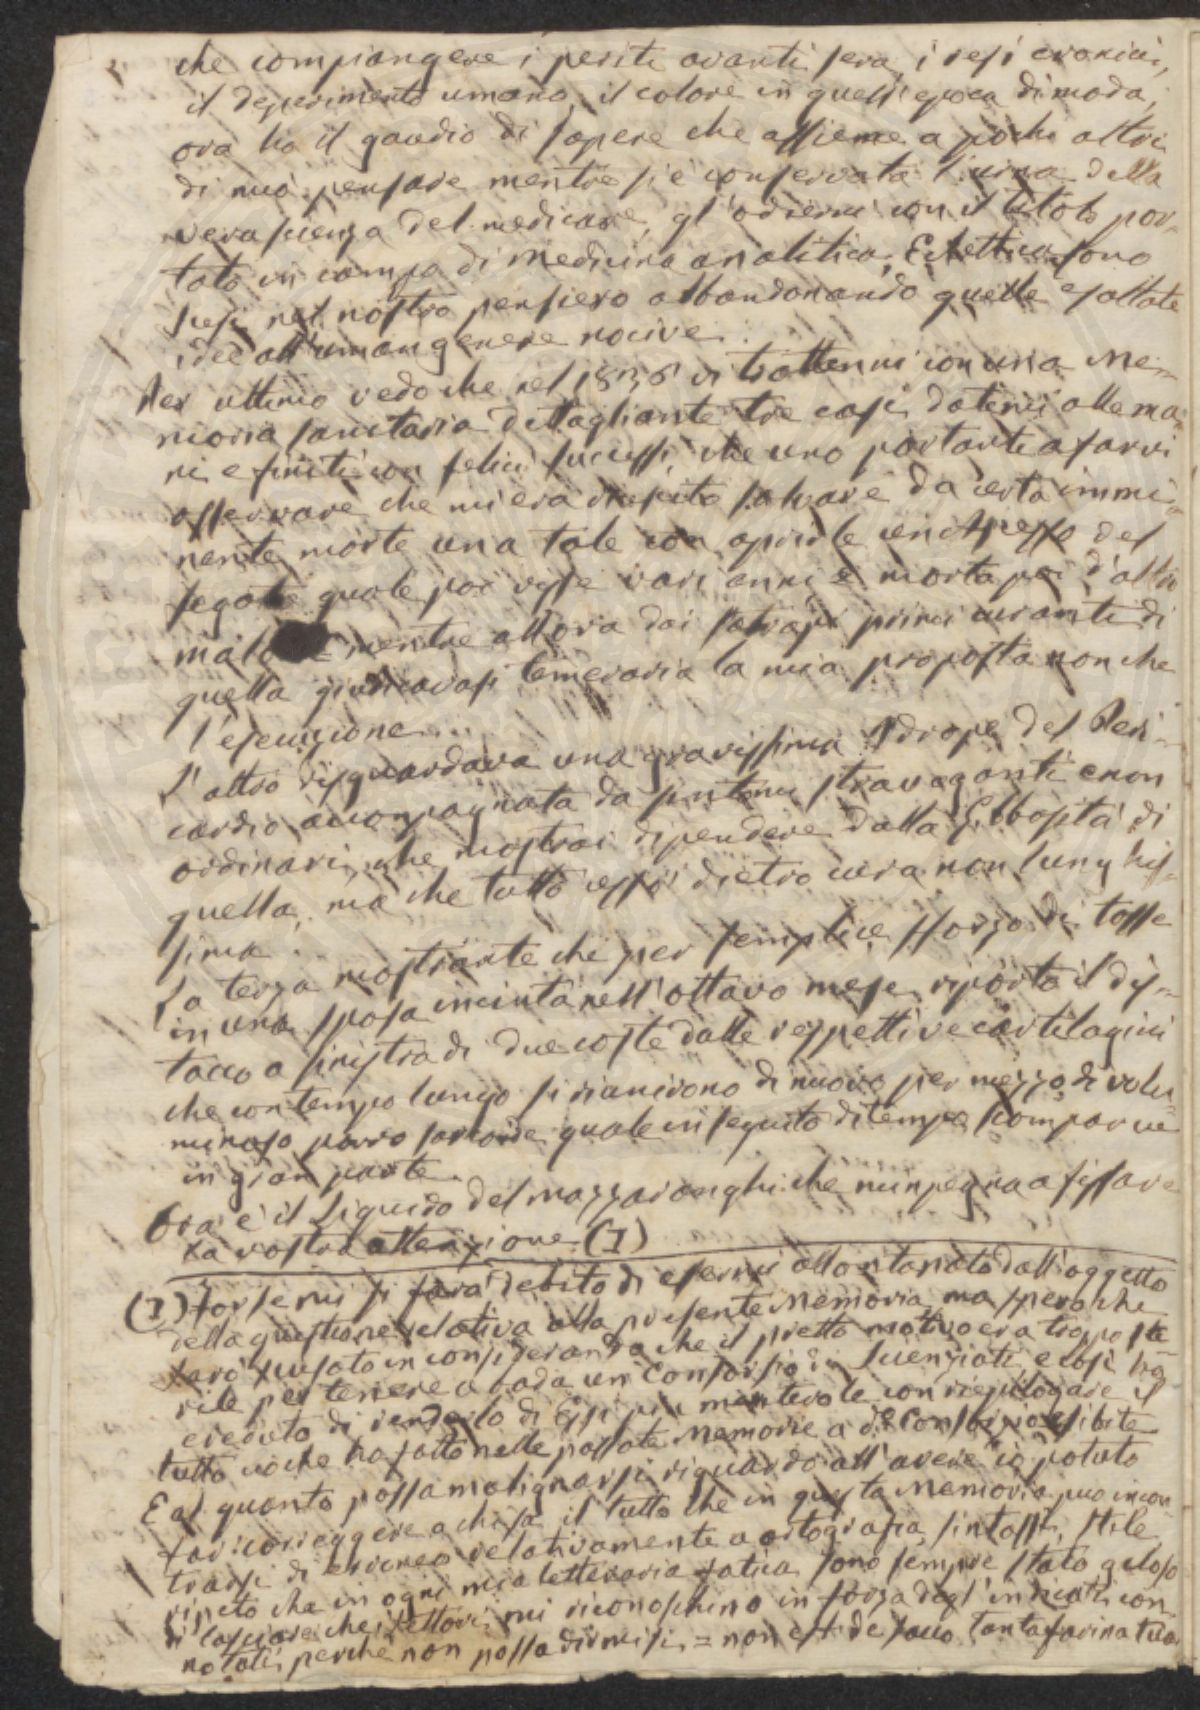 che compiangere i periti avanti sera, i resi cronici,
il deperimento umano, il colore in quell'epoca di moda,
ora ho il gaudio di sapere che assieme a pochi altri
di mio pensare mentre si è conservata l'urna della
vera scienza del medicare, gl'odierni con il titolo por-
tato in campo di Medicina analitica, Eclettica sono
scesi nel nostro pensiero abbandonando quelle esaltate
idee all'uman genere nocive.
Per ultimo vedo che nel 1836 vi trattenni con una Me-
moria sanitaria dettagliante tre casi datimi alle ma-
ni e finiti con felici successi, che uno portante a farvi
osservare che mi era riuscito salvare da certa immi-
nente morte una tale con aprirle un Ascesso del
fegato quale poi visse vari anni, e morta poi d'altro
malo = mentre allora dai satrapi primi curanti di
quella giudicavasi temeraria la mia proposta non che
l'esecuzione.
L'altro risguardava una gravissima Idrope del Peri-
cardio accompagnata da sintomi stravaganti e non
ordinari, che mostrai dipendere dalla Gibbosità di
quella, ma che tutto cessò dietro cura non lunghis-
sima.
La terza mostrante che per semplice sforzo di tosse
in una sposa incinta nell'ottavo mese riportò il dis-
tacco a sinistra di due coste dalle rispettive cartilagini
che con tempo lungo si riunirono di nuovo per mezzo di volu-
minoso porro sarcoide quale in seguito di tempo scomparve
in gran parte.
Ora è il Liquido del Mazzaronghi che m'impegna a fissare
la vostra attenzione (I)
(I) Forse mi si farà debito di essermi allontanato dall'oggetto
della questione relativa alla presente Memoria, ma spero che
sarò scusato in considerando che il pretto motivo era troppo ste-
rile per tenere a bada un Consorzio di Scienziati, e così ho
creduto di renderlo di Essi più meritevole con riepilogare il
tutto ciò che ho fatto nelle passate Memorie a do Consorzio esibite
E al quanto possa malignarsi riguardo all'avere io potuto
far correggere a chi sa il tutto che in questa Memoria può incon-
trarsi di erroneo relativamente a ortografia, sintassi, stile
ripeto che in ogni mia letteraria fatica sono sempre stato geloso
di lasciare che i lettori mi riconoschino in forza degl'indicati con-
notati, perché non possa dirmisi = non est de sacco tanta farina tuo